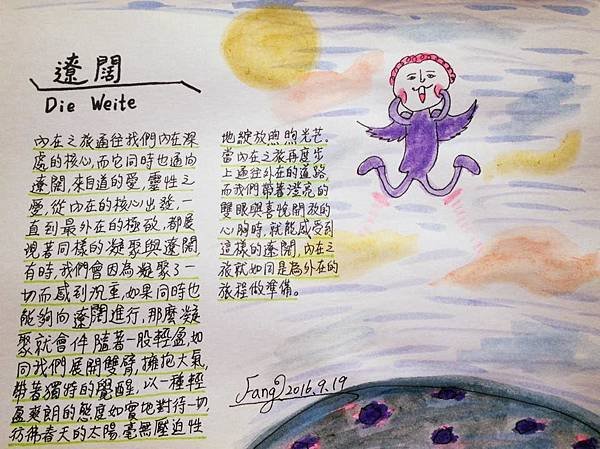 遼闊
Die Weite
內在之旅通往我們內在深
處的核心,而它同時也通向
遼闊.來自道的愛,靈性之
愛,從內在的核心出發,一
直到最外在的極破,都展
現著同樣的凝聚與遼闊
有時,我們會因為凝聚了一
切而感到沉重,如果同時也
能夠向遼闊進行,那麼凝
聚就會伴隨著一股輕盈,如
同我們展開雙臂,擁抱大氣,
帶著獨特的覺醒,以一種輕
盈爽朗的態度如實地對待一切,
彷彿春天的太陽,毫無壓迫性
地綻放煦煦光芒。
當內在之旅再度步
上通往外在的道路,
而我們帶著澄亮的
雙眼與喜悅開放的
心胸時,就能感受到
這樣的遼闊,內在之
旅就如同是為外在的
旅程做準備。
Fang 2016.9.19